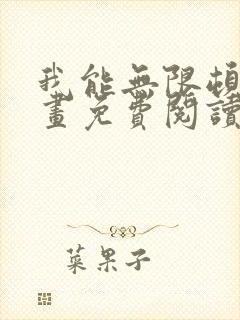 我能無限頓
畫免費閱讀
菜果子